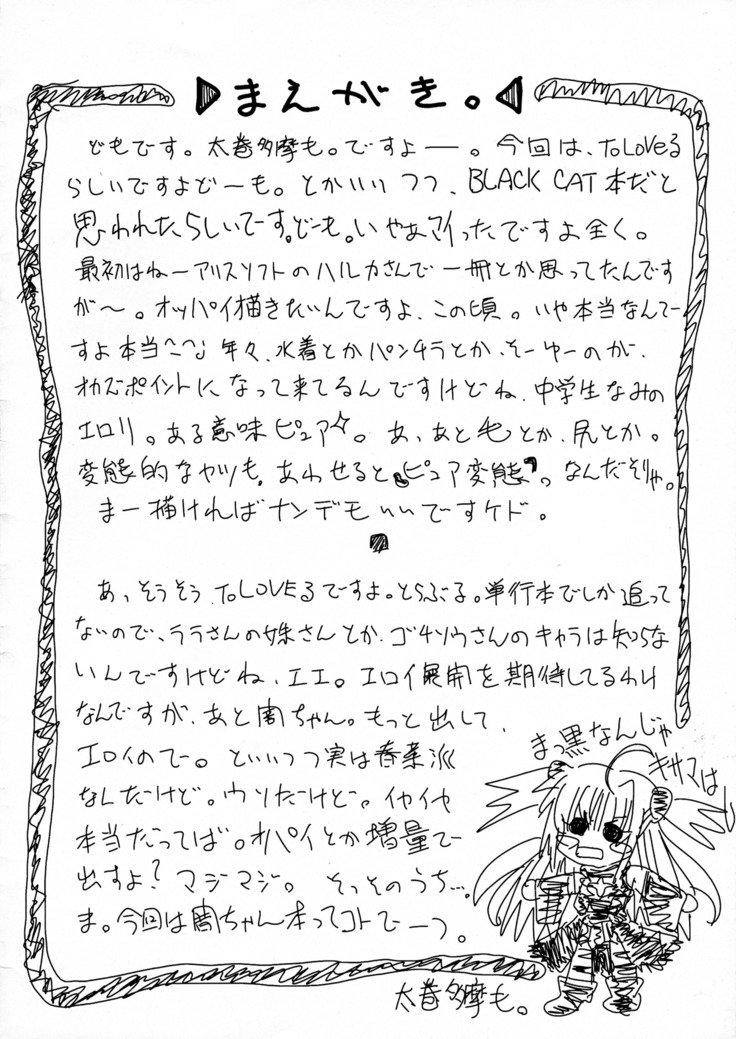 まえがき。
どもです。太巻多摩も。ですよー。今回は、ToLOVEる
らしいですよどーも。とかいいつつ、BLACK CAT本だと
思われたらしいでーす。どーも。いやあマイったですよ全く。
最初はねーアリスソフトのハルカさんで一冊とか思ってたんです
が〜。オッパイ描きたいんですよ、この頃。いや本当なんでー
すよ本当^^; 年々、水着とかパンチラとか、そーゆーのが、
オカズポイントになって来てるんですけどね、中学生なみの
エロリ。ある意味ピュア☆。あ、あと毛とか、尻とか。
変態的なヤツも。あわせると〝ピュア変態〟。なんだそりゃ。
まー描ければナンデモいいですケド。
あっそうそう、ToLOVEるですよ。とらぶる。単行本でしか追って
ないので、ララさんの妹さんとか、ゴチソウさんのキャラは知らな
いんですけどね、エエ。エロイ展開を期待してるわけ
なんですが、あと闇ちゃん。もっと出して、
エロいのでー。といいつつ実は春菜派
なんだけど。ウソだけど。イヤイヤ
本当だってば。オパイとか増量で
出すよ?マジマジ。そっそのうち…。
ま。今回は闇ちゃん本ってコトでーつ。
まっ黒なんじゃ
キサマは!
太巻多摩も。